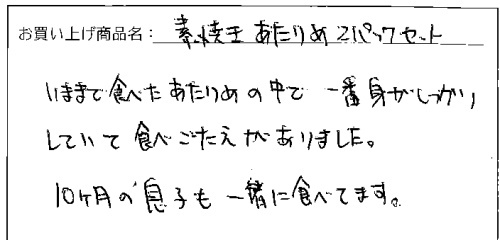 お買い上げ商品名: 素焼王 あたりめ 2パックセット
いままで食べたあたりめの中で 一番身がしっかり
していて食べごたえがありました。
10ヶ月の息子も一緒に食べてます。